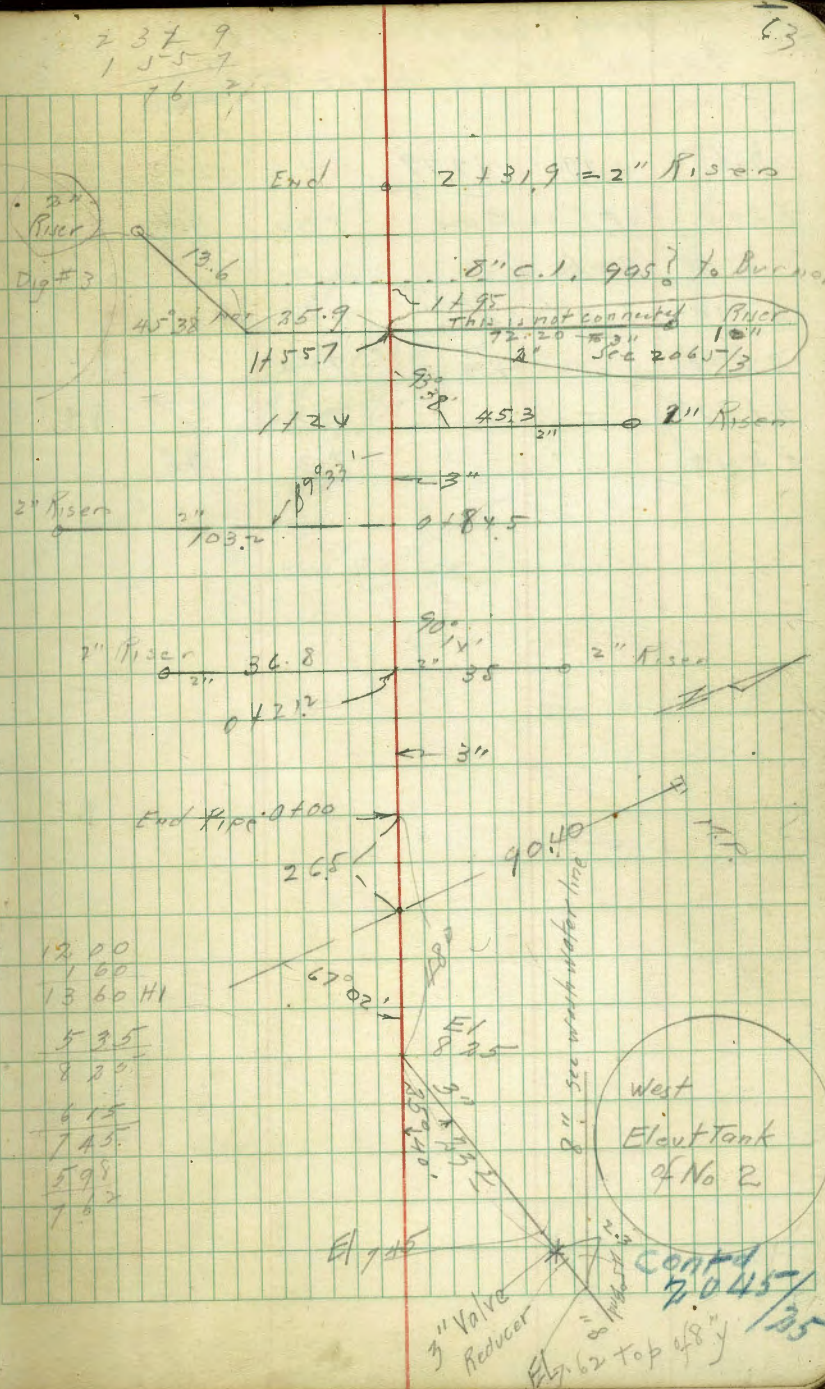 63
2 3 7 9
1 5 5 7
7 6 2
End 2+31.9 = 2" Riser
2" Riser
13.6
8" c.I. gas? to Burner
Dig #3
1+95
45° 38' 25.9 This is not connected Riser
72.20 1"
1+55.7 2" See 2065/3
93° 38'
1+24 45.3 2" Riser
2"
89° 33'
3"
2" Riser 2" 0+84.5
103.2
90° 14'
2" Riser 36.8 2" 35 2" Riser
2"
0+21.2
3"
End Pipe 0+00
26.5 90.40 M.P.
48°
67° 02'
8" see wash water line
12 00
1 60
13 60 HI
5 35
8 25
6 15
7 45
5 98
7 62
El
8 25
3"
35° 40'
West
Elevt Tank
of No 2
El 7 45
3" Valve
Reducer
8"
El 7.62 top of 8" y
Contd
2045/35